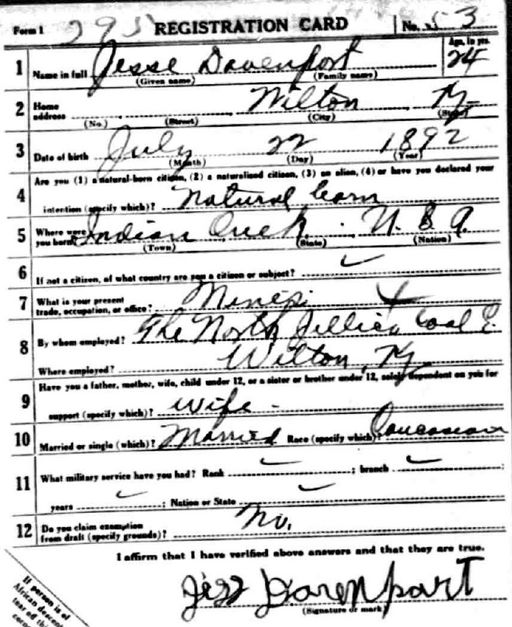 Form 1 295 REGISTRATION CARD No. 53
Age, in yrs.
1 Name in full Jesse Davenport 24
(Given name) (Family name)
2 Home address Wilton Ky
(No.) (Street) (City) (State)
3 Date of birth July 22 1892
(Month) (Day) (Year)
Are you (1) a natural-born citizen, (2) a naturalized citizen, (3) an alien, (4) or have you declared your
4 intention (specify which)? Natural born
5 Where were you born? Indian Creek U. S. A.
(Town) (State) (Nation)
6 If not a citizen, of what country are you a citizen or subject? ✓
7 What is your present trade, occupation, or office?
8 By whom employed? The North Jellico Coal
Where employed? Wilton, Ky
Have you a father, mother, wife, child under 12, or a sister or brother under 12, solely dependent on you for
9 support (specify which)? Wife -
10 Married or single (which)? Married Race (specify which)? Caucasian
11 What military service have you had? Rank ✓ ; branch ✓
years ✓ ; Nation or State ✓
12 Do you claim exemption from draft (specify grounds)? No.
I affirm that I have verified above answers and that they are true.
Jess Davenpart
(Signature or mark)
If person is of
African descent
tear off this